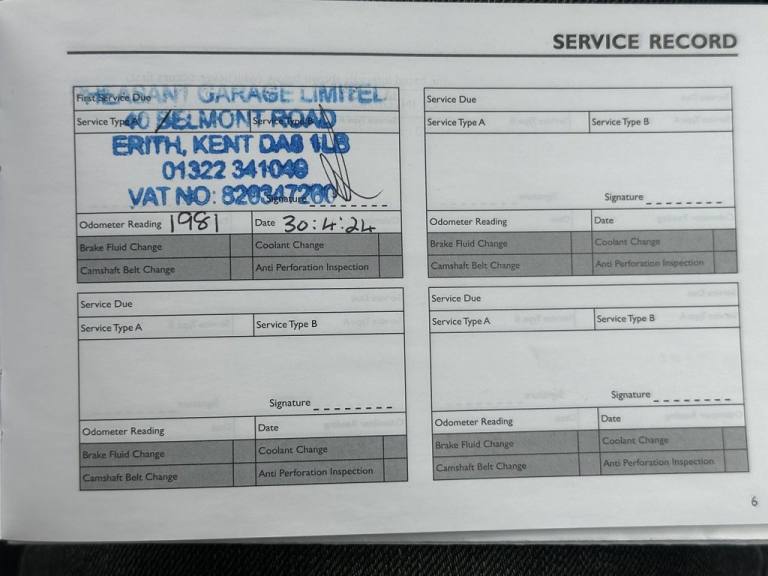 SERVICE RECORD
First Service Due
GARAGE LIMITED
Service Type A Service Type B
40 BELMONT ROAD
ERITH, KENT DA8 1LB
01322 341049
VAT NO:
Signature
Odometer Reading 1981 Date 30:4:24
Brake Fluid Change Coolant Change
Camshaft Belt Change Anti Perforation Inspection
Service Due
Service Type A Service Type B
Signature
Odometer Reading Date
Brake Fluid Change Coolant Change
Camshaft Belt Change Anti Perforation Inspection
Service Due
Service Type A Service Type B
Signature
Odometer Reading Date
Brake Fluid Change Coolant Change
Camshaft Belt Change Anti Perforation Inspection
Service Due
Service Type A Service Type B
Signature
Odometer Reading Date
Brake Fluid Change Coolant Change
Camshaft Belt Change Anti Perforation Inspection
6